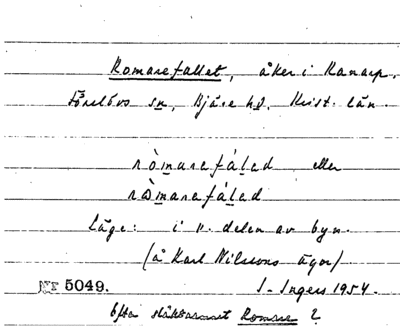 Romarefallet, åker i Ranarp.
Förslövs sn, Bjäre hd, Krist. län.
ròmarefáled eller
ramarefáled
läge: i n. delen av byn.
(å Karl Nilssons ägor)
Nr 5049. I. Ingers 1954.
Efter släktnamnet Romare ?